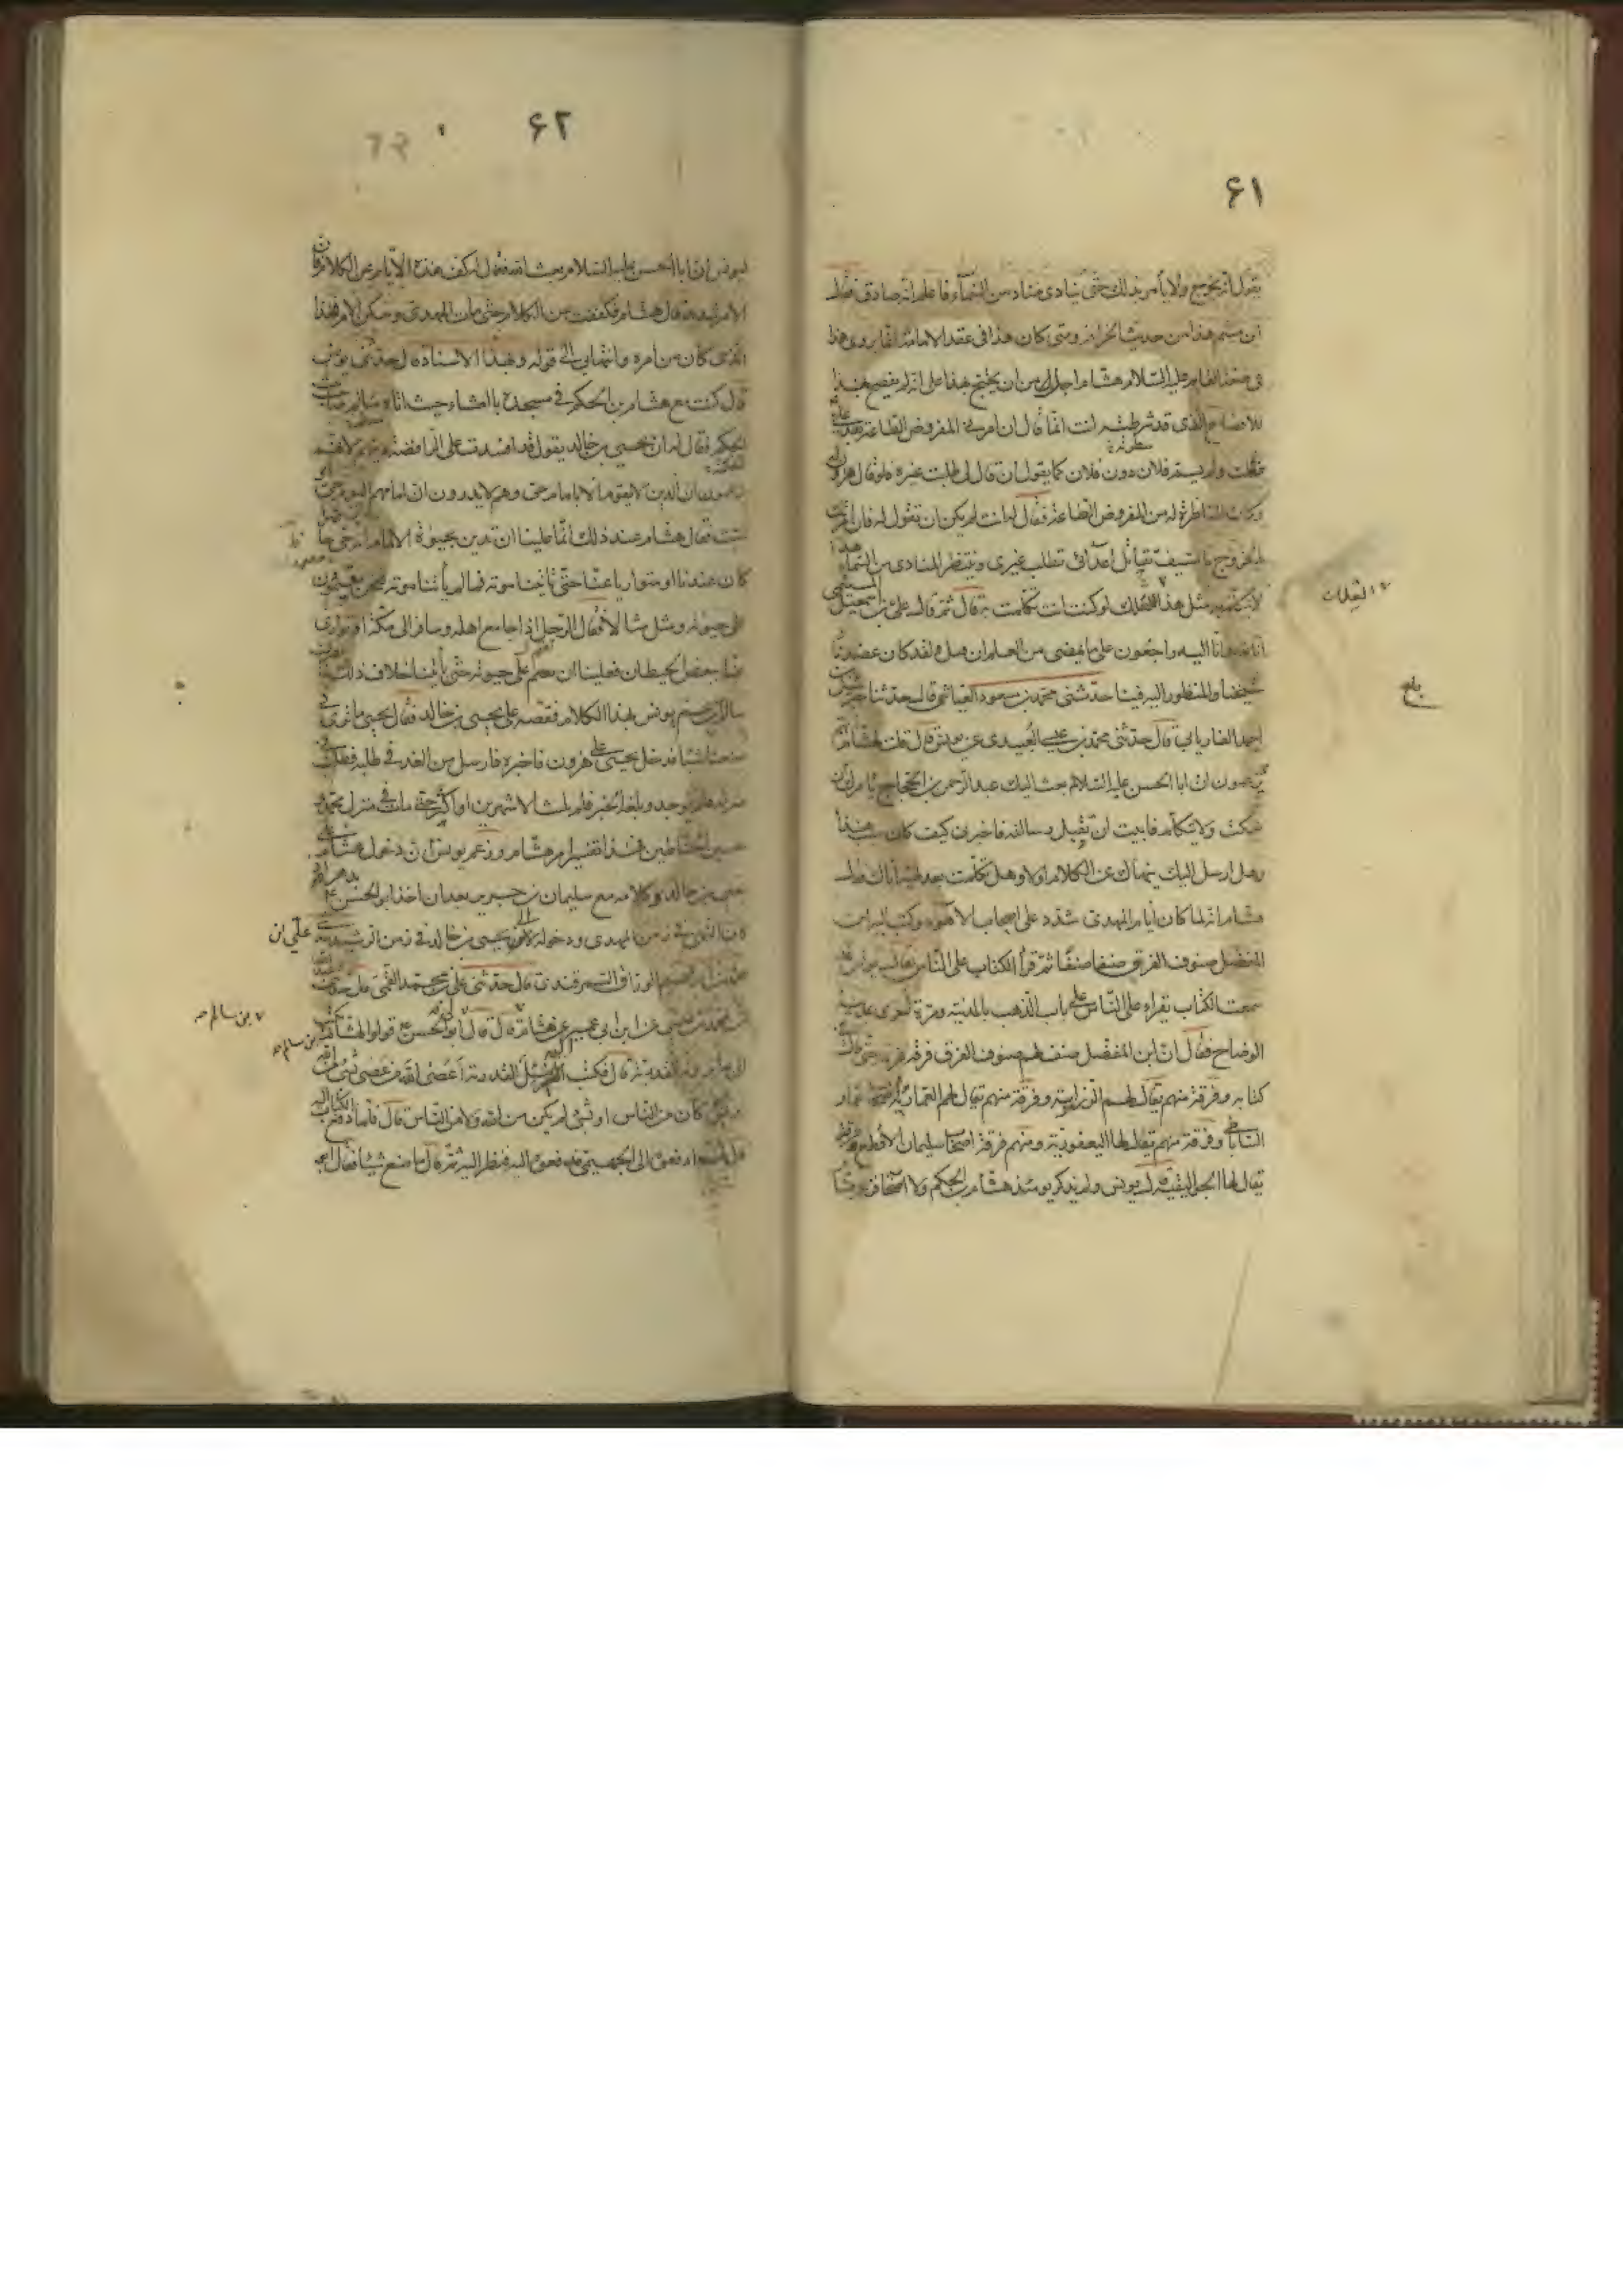 ۶۱
يقول انه بخروج ولا يأمر بذلك حتى ينادى مناد من السماء فاعلم انه صادق فقال
ابن ميثم هذا من حديث الخرافة ومتى كان هذا فى عقد الامامة انما يروى هذا
فى صفة القايم عليه السلام وهشام اجدل من ان يحتج بهذا على انه لم يفصح بهذا
الذى قد شرطته انت انما قال ان امرنى المفروض الطاعة بعد على
فعلت ولم يسم فلان دون فلان كما يقول ان قال لى طلبت غيره فلو قال هرون له
وكان المناظر له من المفروض الطاعة فقال له انت لم يكن ان تقول له فان امرتك
بالخروج بالسيف تقاتل اعدائى تطلب غيرى وتنتظر المنادى من السماء هذا
لا يتكلم به مثل هذا لعلك لو كنت انت تكلمت به قال ثم قال على بن اسمعيل الميثمى
انا لله وانا اليه راجعون على ما يمضى من العلم ان قتل ولقد كان عضدنا
شيخنا والمنظور اليه فينا حدثنى محمد بن مسعود العياشى قال حدثنا جبريل بن
احمد الفاريابى قال حدثنى محمد بن عيسى العبيدى عن يونس قال قلت لهشام انهم
يزعمون ان ابا الحسن عليه السلام بعث اليك عبد الرحمن بن الحجاج يأمرك ان
تسكت ولا تتكلم فابيت ان تقبل رسالته فاخبرنى كيف كان سبب هذا
وهل ارسل اليك ينهاك عن الكلام او لا وهل تكلمت بعد نهيه اياك فقال
هشام انه لما كان ايام المهدى شدد على اصحاب الاهواء وكتب له ابن
المفضل صنوف الفرق صنفا صنفا ثم قرأ الكتاب على الناس فقال يونس قد
سمعت الكتاب يقراء على الناس على باب الذهب بالمدينة ومرة اخرى بمدينة
الوضاح فقال ان ابن المفضل صنف لهم صنوف الفرق فرقة فرقة حتى قال فى
كتابه وفرقة منهم يقال لهم الزرارية وفرقة منهم يقال لهم العمارية اصحاب عمار
الساباطى وفرقة منهم يقال لها اليعفورية ومنهم فرقة اصحاب سليمان الاقطع وفرقة
يقال لها الجواليقية قال يونس ولم يذكر يومئذ هشام بن الحكم ولا اصحابه
بلغ
۶۲
ليونس ان ابا الحسن عليه السلام بعث اليه فقال له كف هذه الايام عن الكلام فان
الامر شديد قال هشام فكففت عن الكلام حتى مات المهدى وسكن الامر فهذا
الذى كان من امره وانتهائى الى قوله وبهذا الاسناد قال حدثنى يونس
قال كنت مع هشام بن الحكم فى مسجده بالعشاء حيث اتاه سالم صاحب بيت
الحكمة فقال له ان يحيى بن خالد يقول قد افسدت على الرافضة دينهم لانهم
يزعمون ان الدين لا يقوم الا بامام حى وهم لا يدرون ان امامهم اليوم حى او
ميت فقال هشام عند ذلك انما علينا ان ندين بحيوة الامام انه حى حاضرا
كان عندنا او متواريا عنا حتى يأتينا موته فما لم يأتنا موته فنحن مقيمون
على حيوته ومثل مثالا فقال الرجل اذا جامع اهله وسافر الى مكة او توارى
عنه ببعض الحيطان فعلينا ان نقيم على حيوته حتى يأتينا خلاف ذلك فانصرف
سالم ابن عم يونس بهذا الكلام فقصه على يحيى بن خالد فقال يحيى ما ترى
صنعنا شيئا فدخل يحيى على هرون فاخبره فارسل من الغد فى طلبه فطلب فى
منزله فلم يوجد وبلغه الخبر فلم يلبث الا شهرين او اكثر حتى مات فى منزل محمد و
حسين الحناطين فهذا تفسير امر هشام وزعم يونس ان دخول هشام على
يحيى بن خالد وكلامه مع سليمان بن جرير بعد ان اخذ ابو الحسن ع بدهر
كان النهى فى زمن المهدى ودخوله الى يحيى بن خالد فى زمن الرشيد
على ابن
الوراق السمرقندى قال حدثنى على بن محمد القمى قال حدثنى
عن ابن ابى عمير عن هشام قال قال ابو الحسن ع قولوا لهشام يكتب
بن سالم صح
بن سالم صح
الى بما يرد به القدرية قال فكتب اليه يسئل القدرية اعصى الله من عصى لشئ من الله
او لشئ كان من الناس او لشئ لم يكن من الله ولا من الناس قال فلما دفع الكتاب اليه
قال لهم ادفعوه الى الجهمى فدفعوه اليه فنظر اليه ثم قال ما صنع شيئا فقال ابو